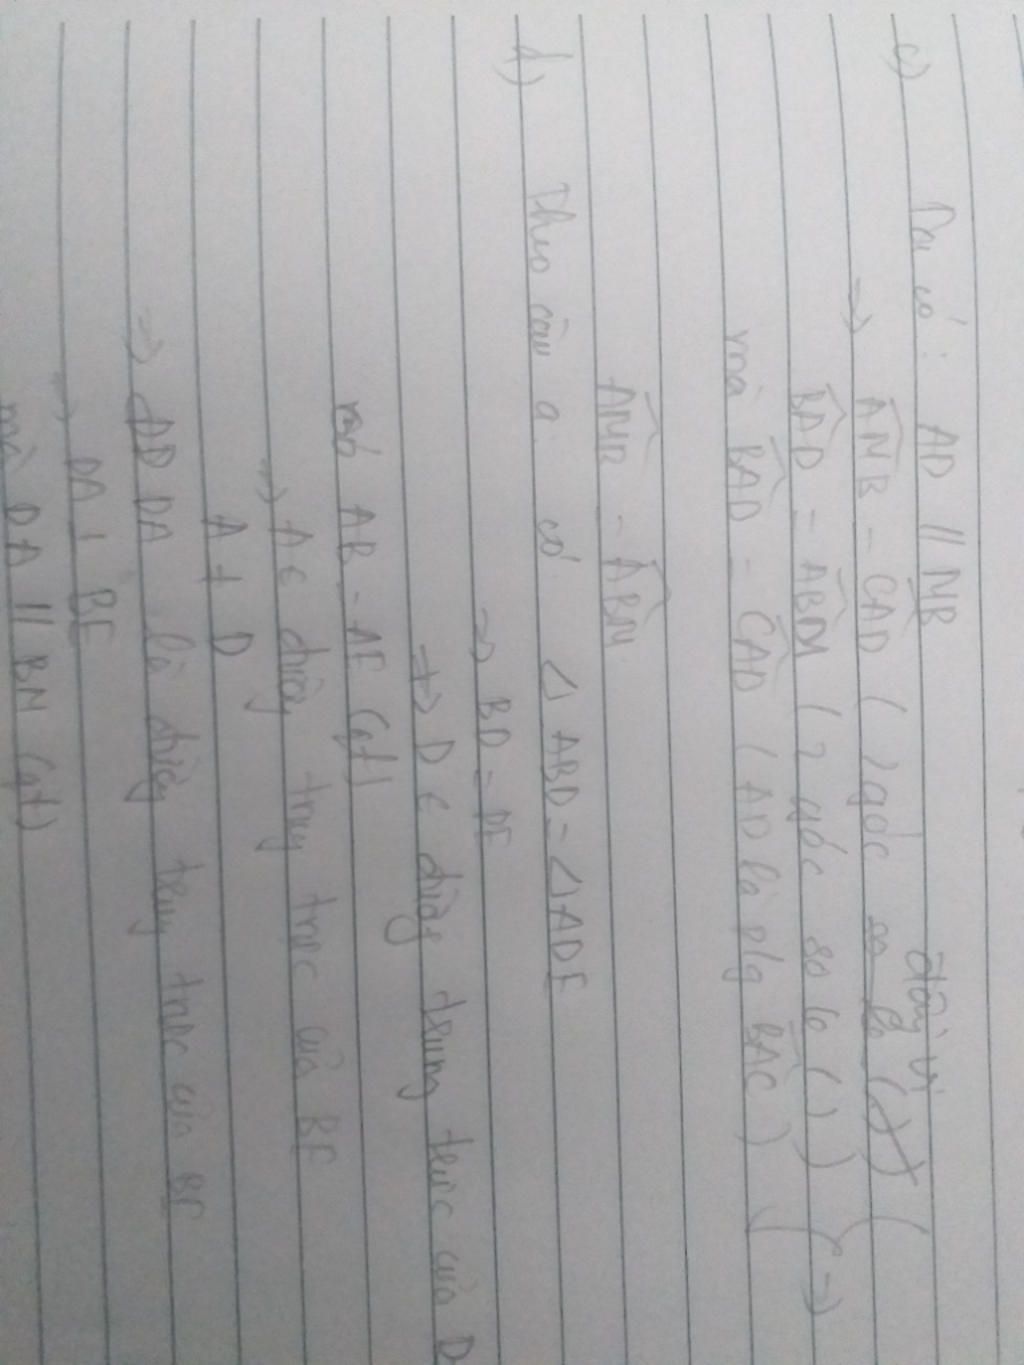 c) Ta có: AD // MB
=> ANB = CAD (2 góc đồng vị)
BAD = ABM (2 góc so le ( ))
mà BAD = CAD (AD là p/g BAC)
=> AMB = ABM
d) Theo câu a. có △ABD = △ADE
=> BD = DE
=> D ∈ đường trung trực của
mà AB = AE (gt)
=> A ∈ đường trung trực của BE
A ≠ D
=> DA là đường trung trực của BE
=> DA ⊥ BE
mà DA // BM (gt)